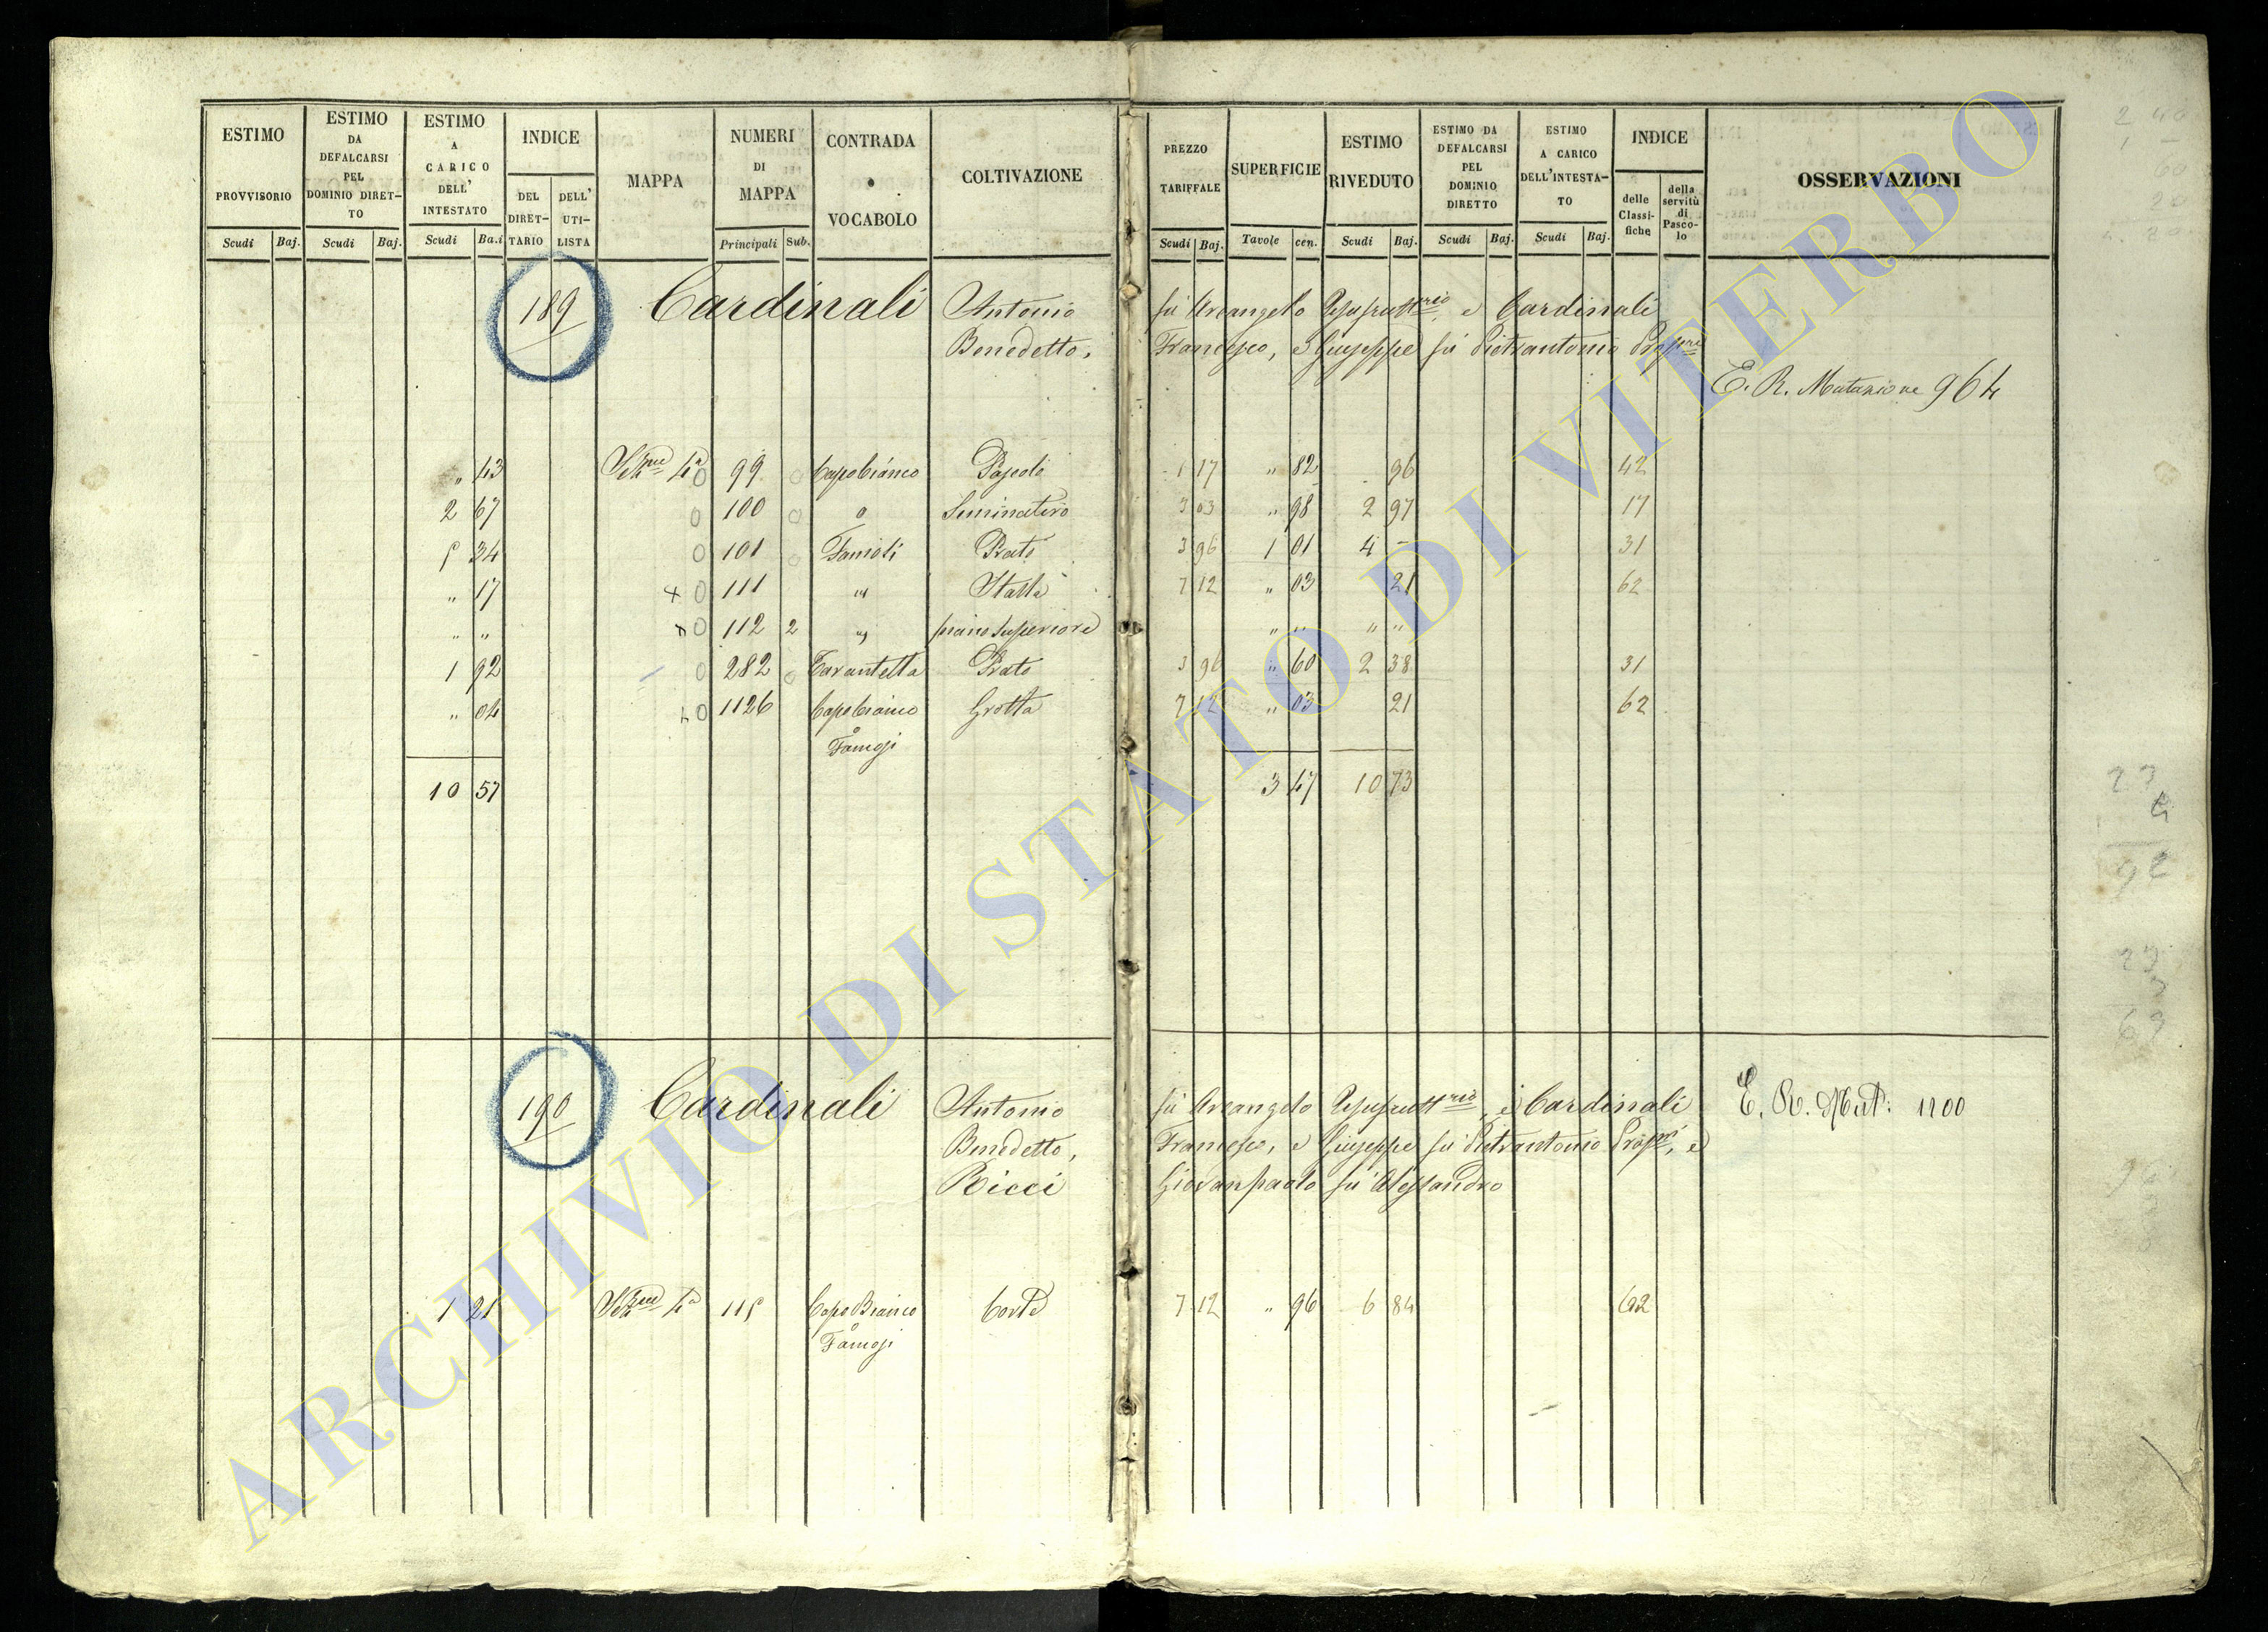 ESTIMO PROVVISORIO
ESTIMO DA DEFALCARSI PEL DOMINIO DIRET-TO
ESTIMO A CARICO DELL' INTESTATO
INDICE
DEL DIRET-TARIO
DELL' UTI-LISTA
MAPPA
NUMERI DI MAPPA
CONTRADA o VOCABOLO
COLTIVAZIONE
PREZZO TARIFFALE
SUPERFICIE
ESTIMO RIVEDUTO
ESTIMO DA DEFALCARSI PEL DOMINIO DIRETTO
ESTIMO A CARICO DELL'INTESTA-TO
INDICE
delle Classi-fiche
della servitù di Pasco-lo
OSSERVAZIONI
Scudi Baj. Scudi Baj. Scudi Ba.i Principali Sub. Scudi Baj. Tavole cen. Scudi Baj. Scudi Baj. Scudi Baj.
189 Cardinali Antonio fù Arcangelo Usufruttrio, e Cardinali
Benedetto, Francesco, e Giuseppe fù Pietrantonio Propri
E. R. Mutazione 964
„ 43 99 Capobianco Pascolo 1 17 „ 82 96 42
2 67 100 Seminativo 3 03 „ 98 2 97 17
5 34 101 Prato 3 96 1 01 4 - 31
„ 17 111 Stalla 7 12 „ 03 21 62
„ „ 112 2 piano superiore „ „ „ „
1 92 282 Tarantella Prato 3 96 „ 60 2 38 31
„ 04 1126 Capobianco Grotta 7 12 „ 03 21 62
o Famosi
10 57 3 47 10 73
190 Cardinali Antonio fù Arcangelo Usufruttrio, e Cardinali E. R. Mut: 1100
Benedetto, Francesco, e Giuseppe fù Pietrantonio Propri, e
Ricci Giovanpaolo fù Alessandro
1 21 115 Capo Bianco Corte 7 12 „ 96 6 84 62
o Famosi
ARCHIVIO DI STATO DI VITERBO